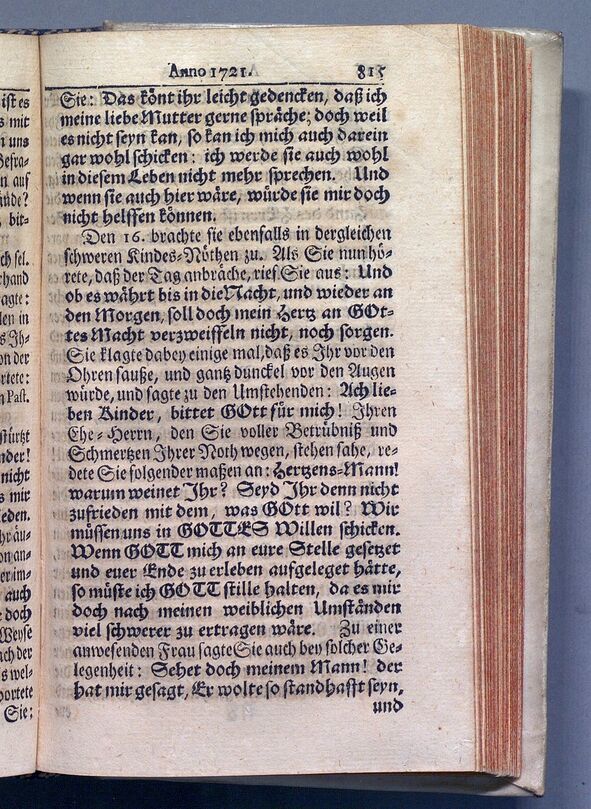 Anno 1721. 815
Sie: Das könt ihr leicht gedencken, daß ich
meine liebe Mutter gerne spräche; doch weil
es nicht seyn kan, so kan ich mich auch darein
gar wohl schicken: ich werde sie auch wohl
in diesem Leben nicht mehr sprechen. Und
wenn sie auch hier wäre, würde sie mir doch
nicht helffen können.
Den 16. brachte sie ebenfalls in dergleichen
schweren Kindes-Nöthen zu. Als Sie nun hö-
rete, daß der Tag anbräche, rief Sie aus: Und
ob es währt bis in die Nacht, und wieder an
den Morgen, soll doch mein Hertz an GOt-
tes Macht verzweiffeln nicht, noch sorgen.
Sie klagte dabey einige mal, daß es Ihr vor den
Ohren sauße, und gantz dunckel vor den Augen
würde, und sagte zu den Umstehenden: Ach lie-
ben Kinder, bittet GOtt für mich! Ihren
Ehe-Herrn, den Sie voller Betrübniß und
Schmertzen Ihrer Noth wegen, stehen sahe, re-
dete Sie folgender maßen an: Hertzens-Mann!
warum weinet Ihr? Seyd Ihr denn nicht
zufrieden mit dem, was GOtt wil? Wir
müssen uns in GOTTES Willen schicken.
Wenn GOTT mich an eure Stelle gesetzet
und euer Ende zu erleben aufgeleget hätte,
so müste ich GOTT stille halten, da es mir
doch nach meinen weiblichen Umständen
viel schwerer zu ertragen wäre. Zu einer
anwesenden Frau sagte Sie auch bey solcher Ge-
legenheit: Sehet doch meinem Mann! der
hat mir gesagt, Er wolte so standhafft seyn,
und
ist es
s mit
n uns
Gefra-
n auf
ünde?
, bit-
ch sel.
rhand
sagte:
len in
s Ih-
on der
rtete:
n Past.
stürtzt
nder!
nicht
s mir
ieden.
on an-
er im-
auch
e doch
Weyse
ach der
s wel-
portete
Sie: